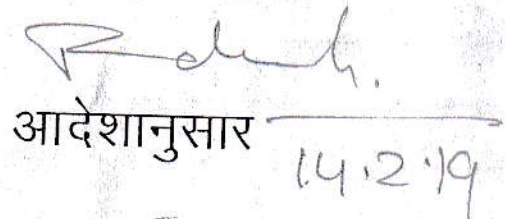 आदेशानुसार
14.2.19